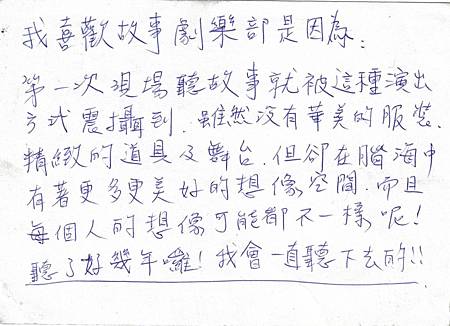 我喜歡故事劇樂部是因為:
第一次現場聽故事就被這種演出
方式震攝到.雖然沒有華美的服裝.
精緻的道具及舞台.但卻在腦海中
有著更多更美好的想像空間.而且
每個人的想像可能都不一樣呢!
聽了好幾年囉!我會一直聽下去的!!